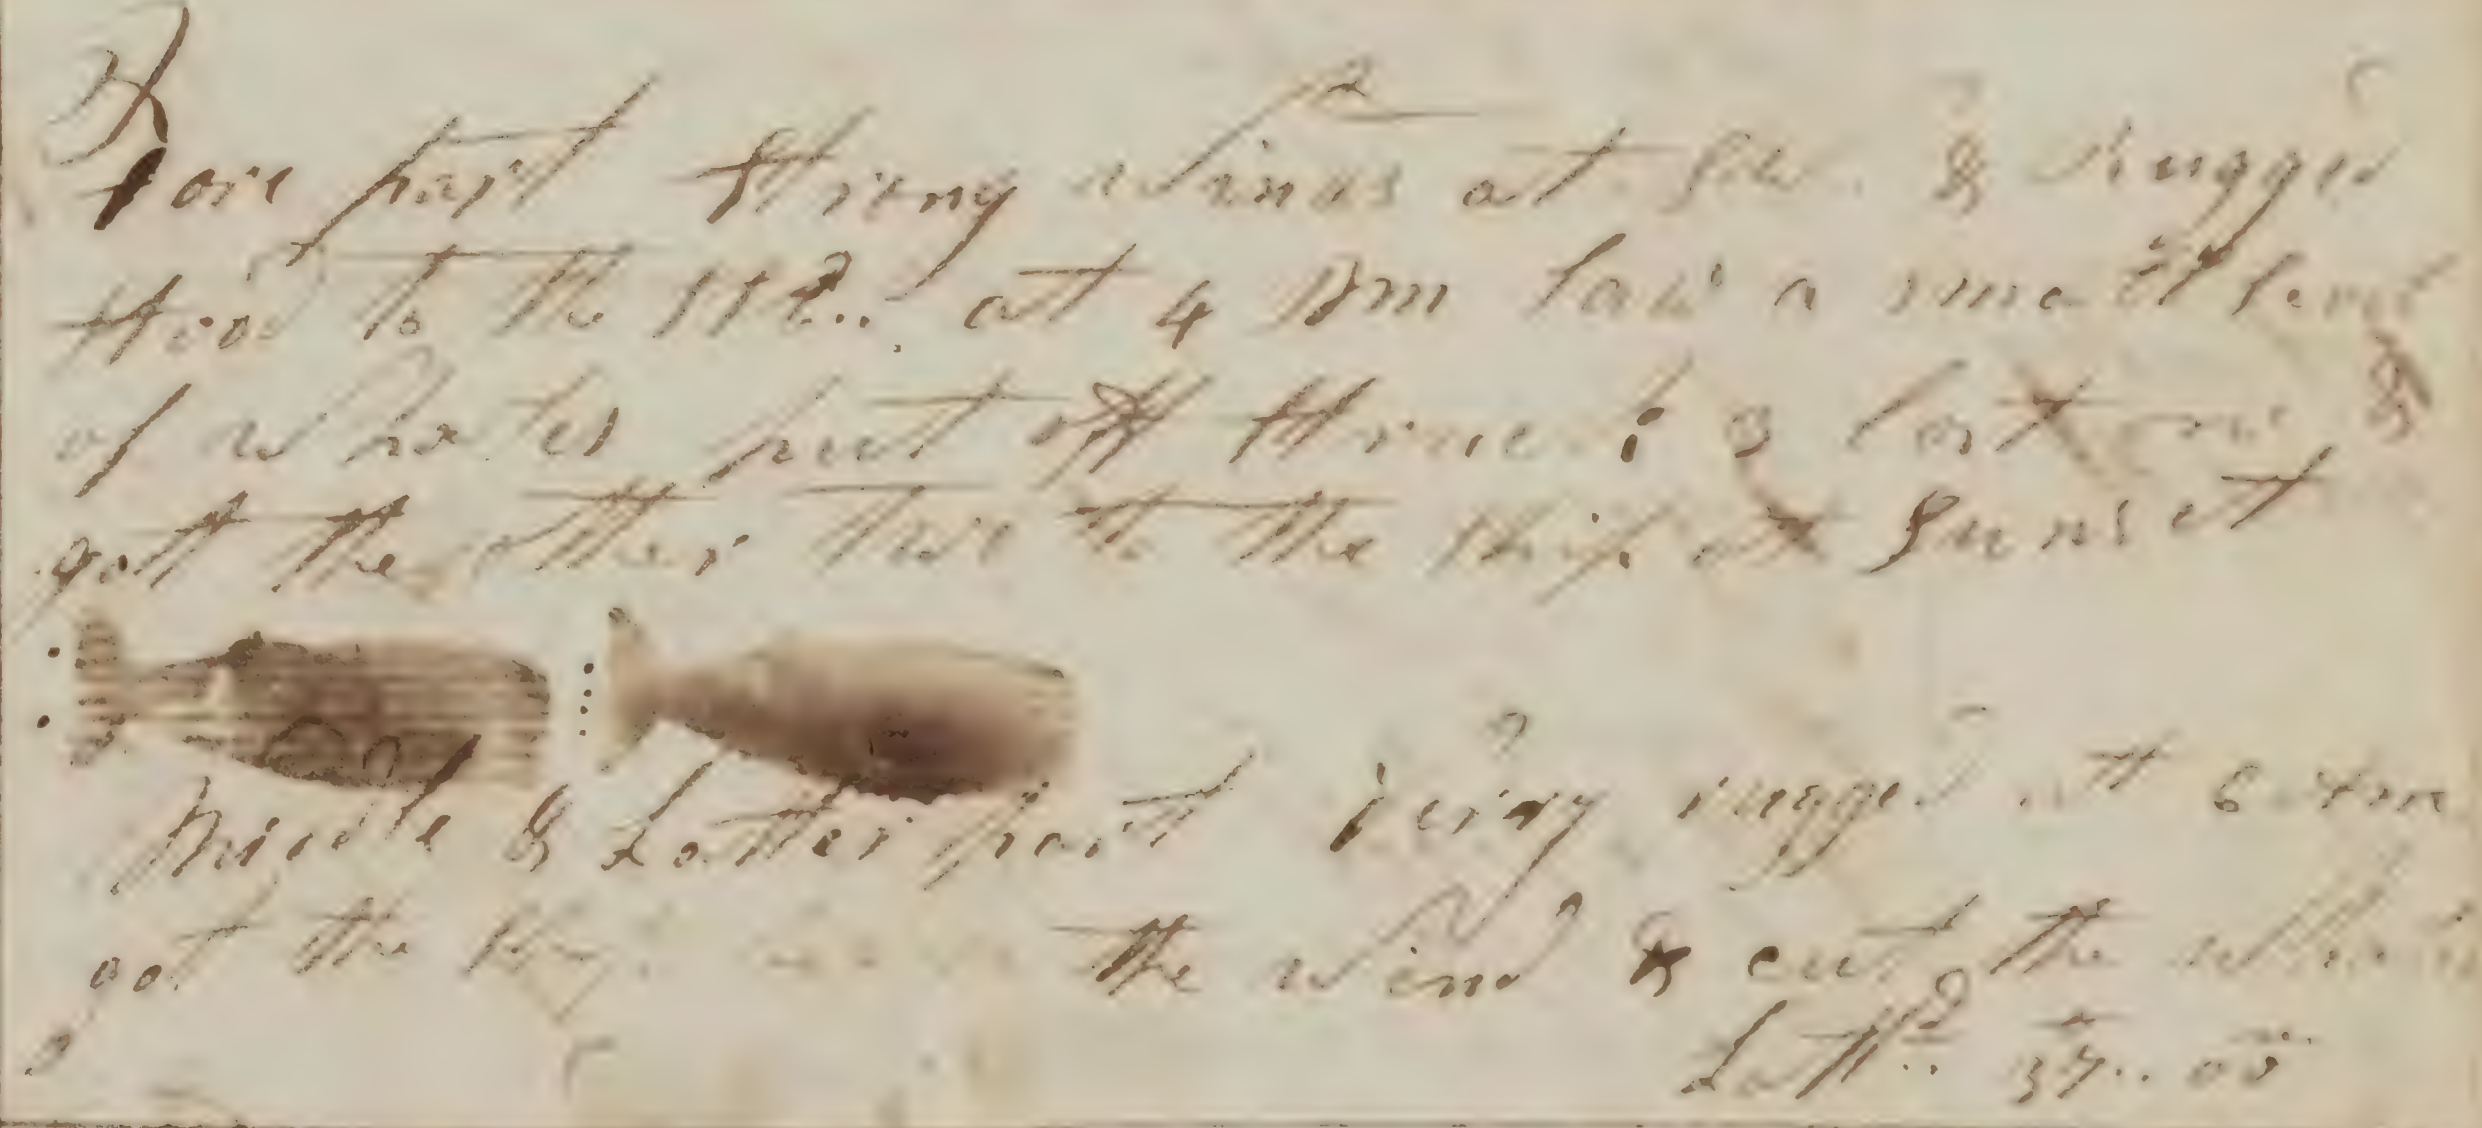 Fore part Strong winds at SW. & Rugged
Stood to the SSE.. at 4 Pm Saw a small
of whales put off struck 3 lost one &
gott the other two to the ship at Sunset
Middle & Latter part verry rugged att 6 Am
got the the wind & cut the
Latt.. 37.. 05